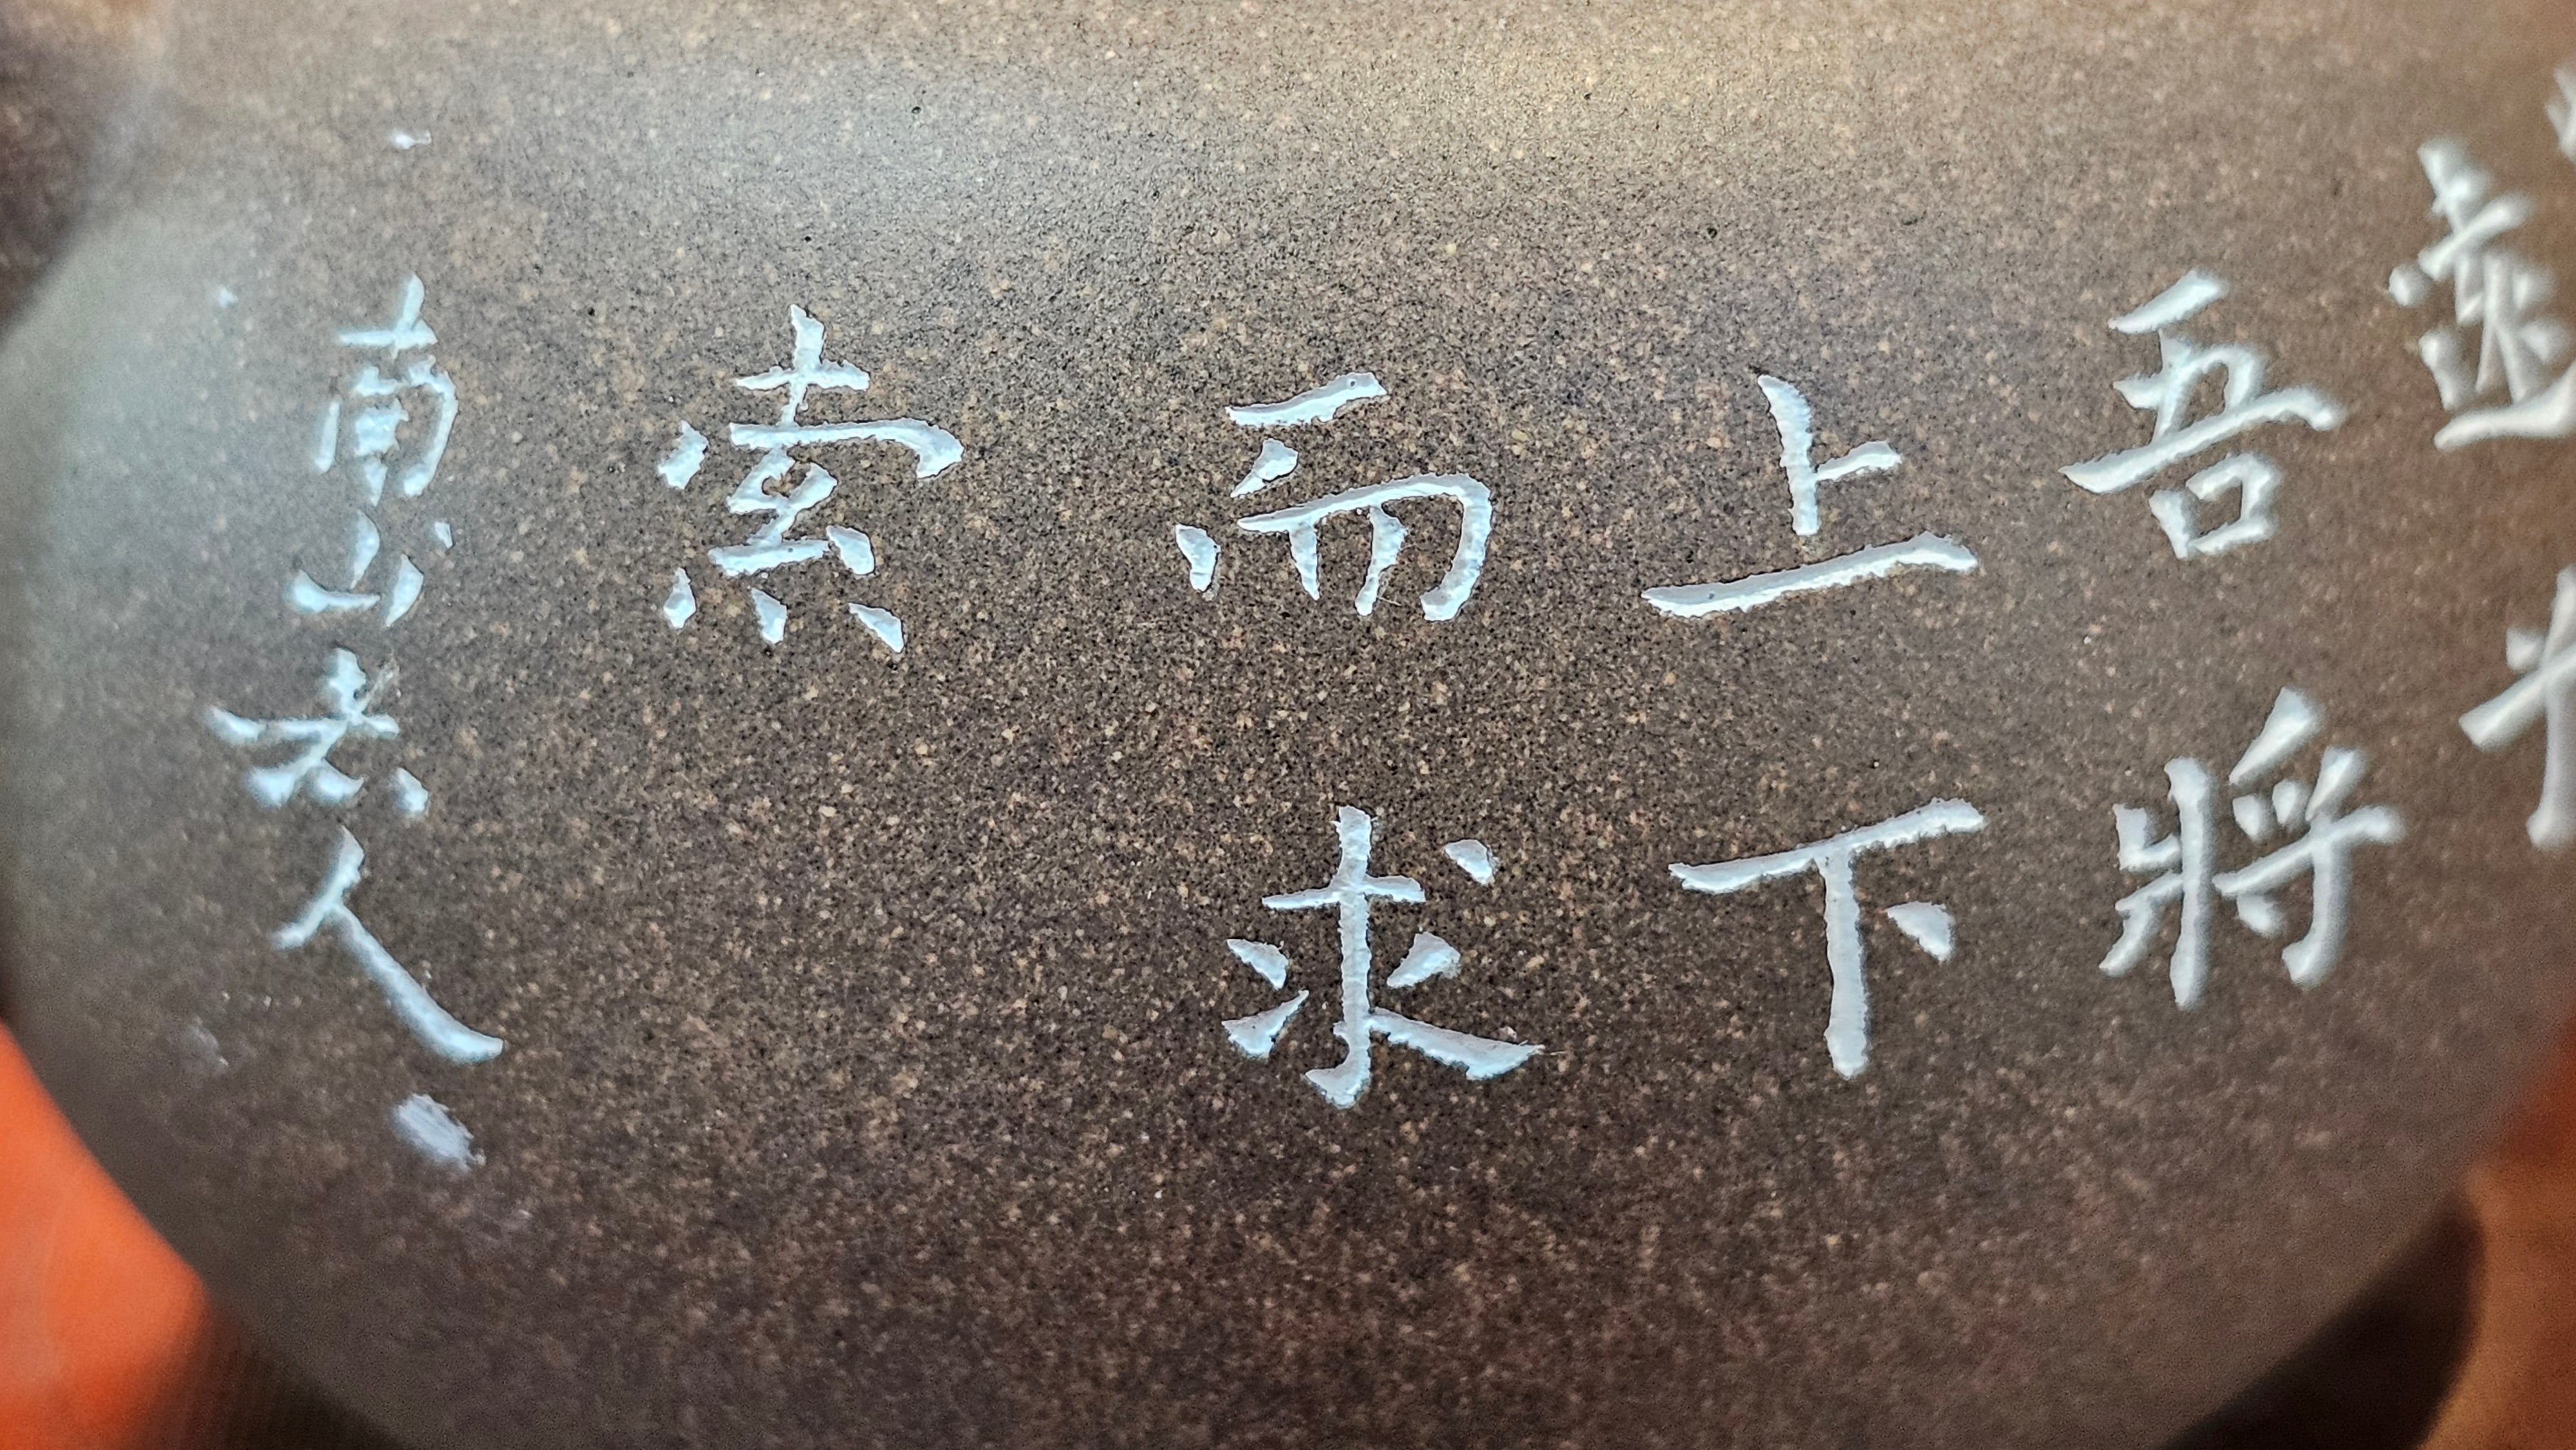 遠
吾將
上下
而求
索
南山老人